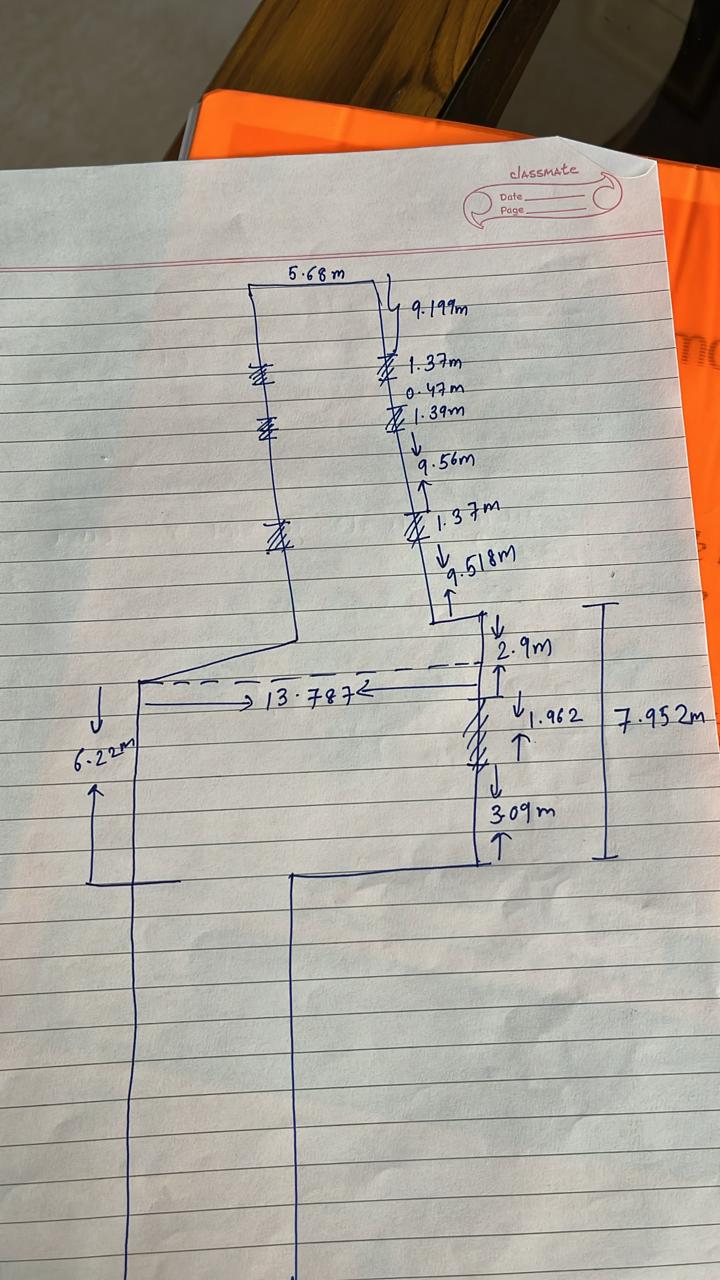 classmate
Date
Page
5.68m
9.199m
1.37m
0.47m
1.39m
9.56m
1.37m
9.518m
2.9m
13.787
1.962
7.952m
6.22m
3.09m